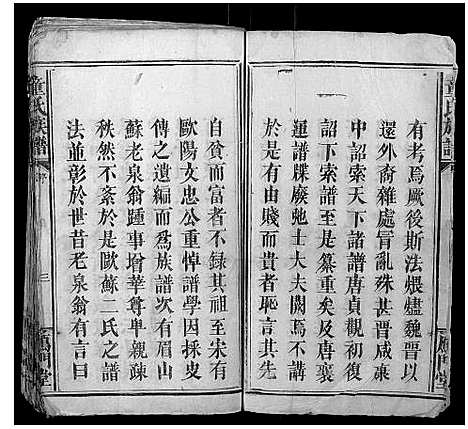 童氏族譜
雁門堂
有考焉厥後斯法煨燼魏晉以
還外裔雜處冒亂殊甚晉咸康
中詔索天下諸譜唐貞觀初復
詔下索譜至是纂重矣及唐襄
運譜牒廢弛士大夫闕焉不講
於是有由賤而貴者恥言其先
自貧而富者不録其祖至宋有
歐陽文忠公重悼譜學因採史
傳之遺編而爲族譜次有眉山
蘇老泉翁踵事增華尊卑親疎
秩然不紊於是歐蘇二氏之譜
法並彰於世昔老泉翁有言曰
童氏族譜
序
三
雁門堂